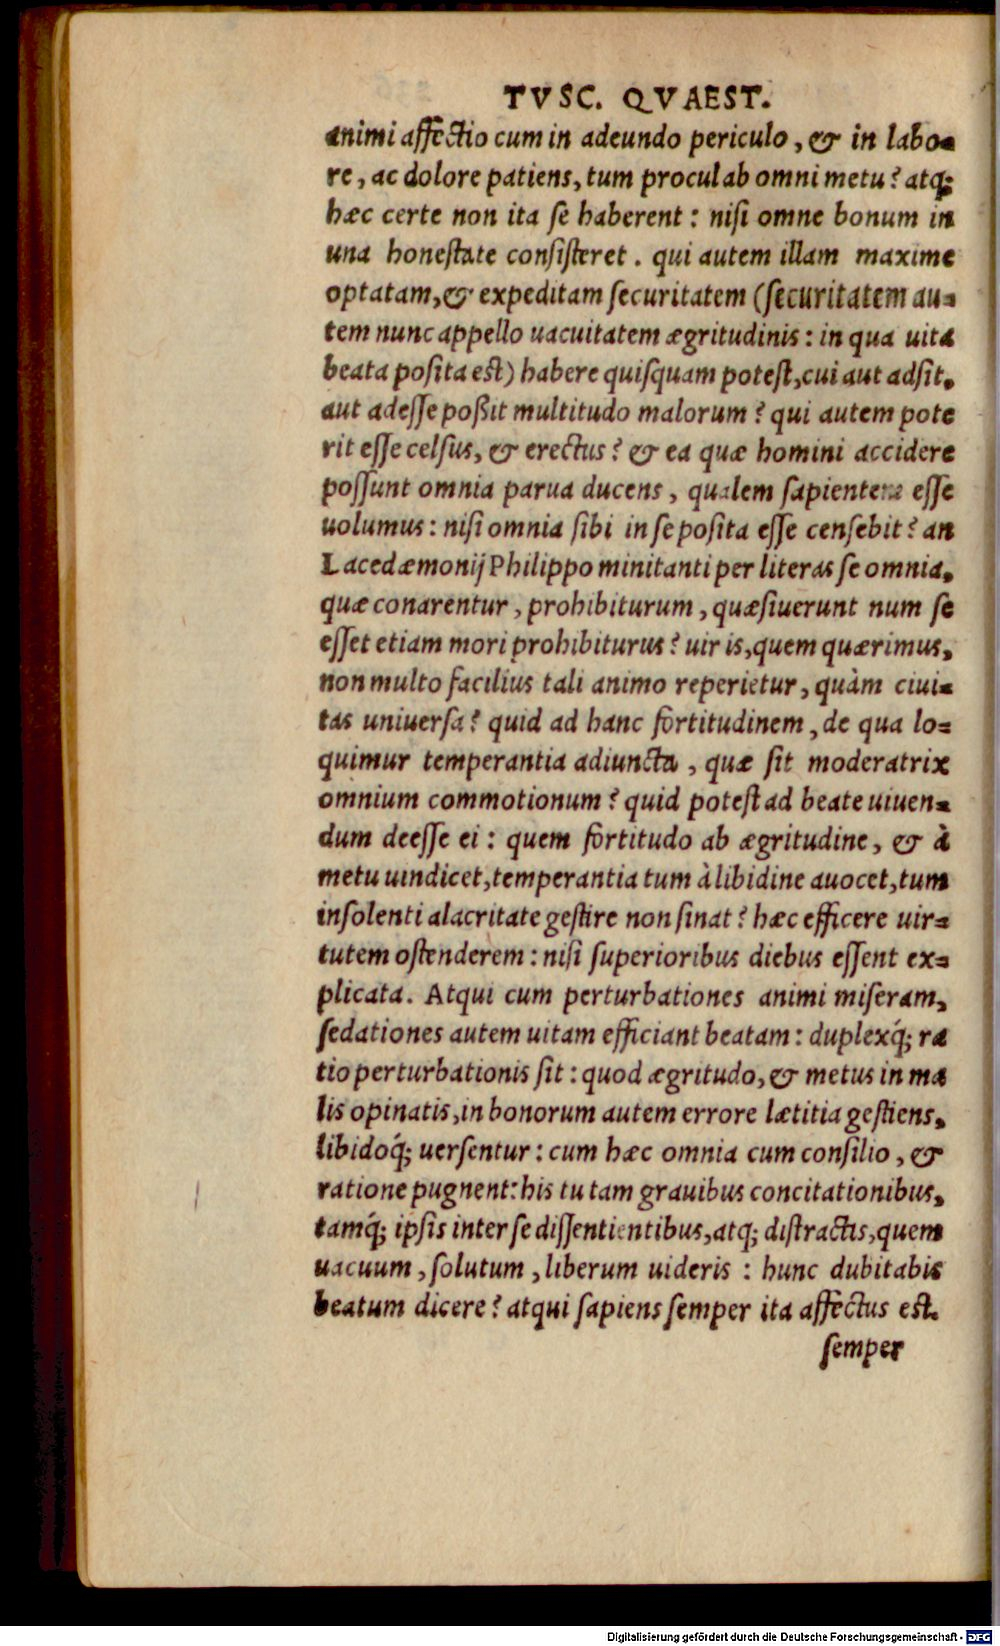 TVSC. QVAEST.
animi affectio cum in adeundo periculo, & in labo=
re, ac dolore patiens, tum procul ab omni metu? atq;
hæc certe non ita se haberent: nisi omne bonum in
una honestate consisteret. qui autem illam maxime
optatam, & expeditam securitatem (securitatem au=
tem nunc appello uacuitatem ægritudinis: in qua uita
beata posita est) habere quisquam potest, cui aut adsit,
aut adesse poßit multitudo malorum? qui autem pote
rit esse celsus, & erectus? & ea quæ homini accidere
possunt omnia parua ducens, qualem sapientem esse
uolumus: nisi omnia sibi in se posita esse censebit? an
Lacedæmonij Philippo minitanti per literas se omnia,
quæ conarentur, prohibiturum, quæsiuerunt num se
esset etiam mori prohibiturus? uir is, quem quærimus,
non multo facilius tali animo reperietur, quàm ciui=
tas uniuersa? quid ad hanc fortitudinem, de qua lo=
quimur temperantia adiuncta, quæ sit moderatrix
omnium commotionum? quid potest ad beate uiuen=
dum deesse ei: quem fortitudo ab ægritudine, & à
metu uindicet, temperantia tum à libidine auocet, tum
insolenti alacritate gestire non sinat? hæc efficere uir=
tutem ostenderem: nisi superioribus diebus essent ex=
plicata. Atqui cum perturbationes animi miseram,
sedationes autem uitam efficiant beatam: duplexq́; ra
tio perturbationis sit: quod ægritudo, & metus in ma
lis opinatis, in bonorum autem errore lætitia gestiens,
libidoq́; uersentur: cum hæc omnia cum consilio, &
ratione pugnent: his tu tam grauibus concitationibus,
tamq́; ipsis inter se dissentientibus, atq; distractis, quem
uacuum, solutum, liberum uideris: hunc dubitabis
beatum dicere? atqui sapiens semper ita affectus est.
semper
Digitalisierung gefördert durch die Deutsche Forschungsgemeinschaft - DFG